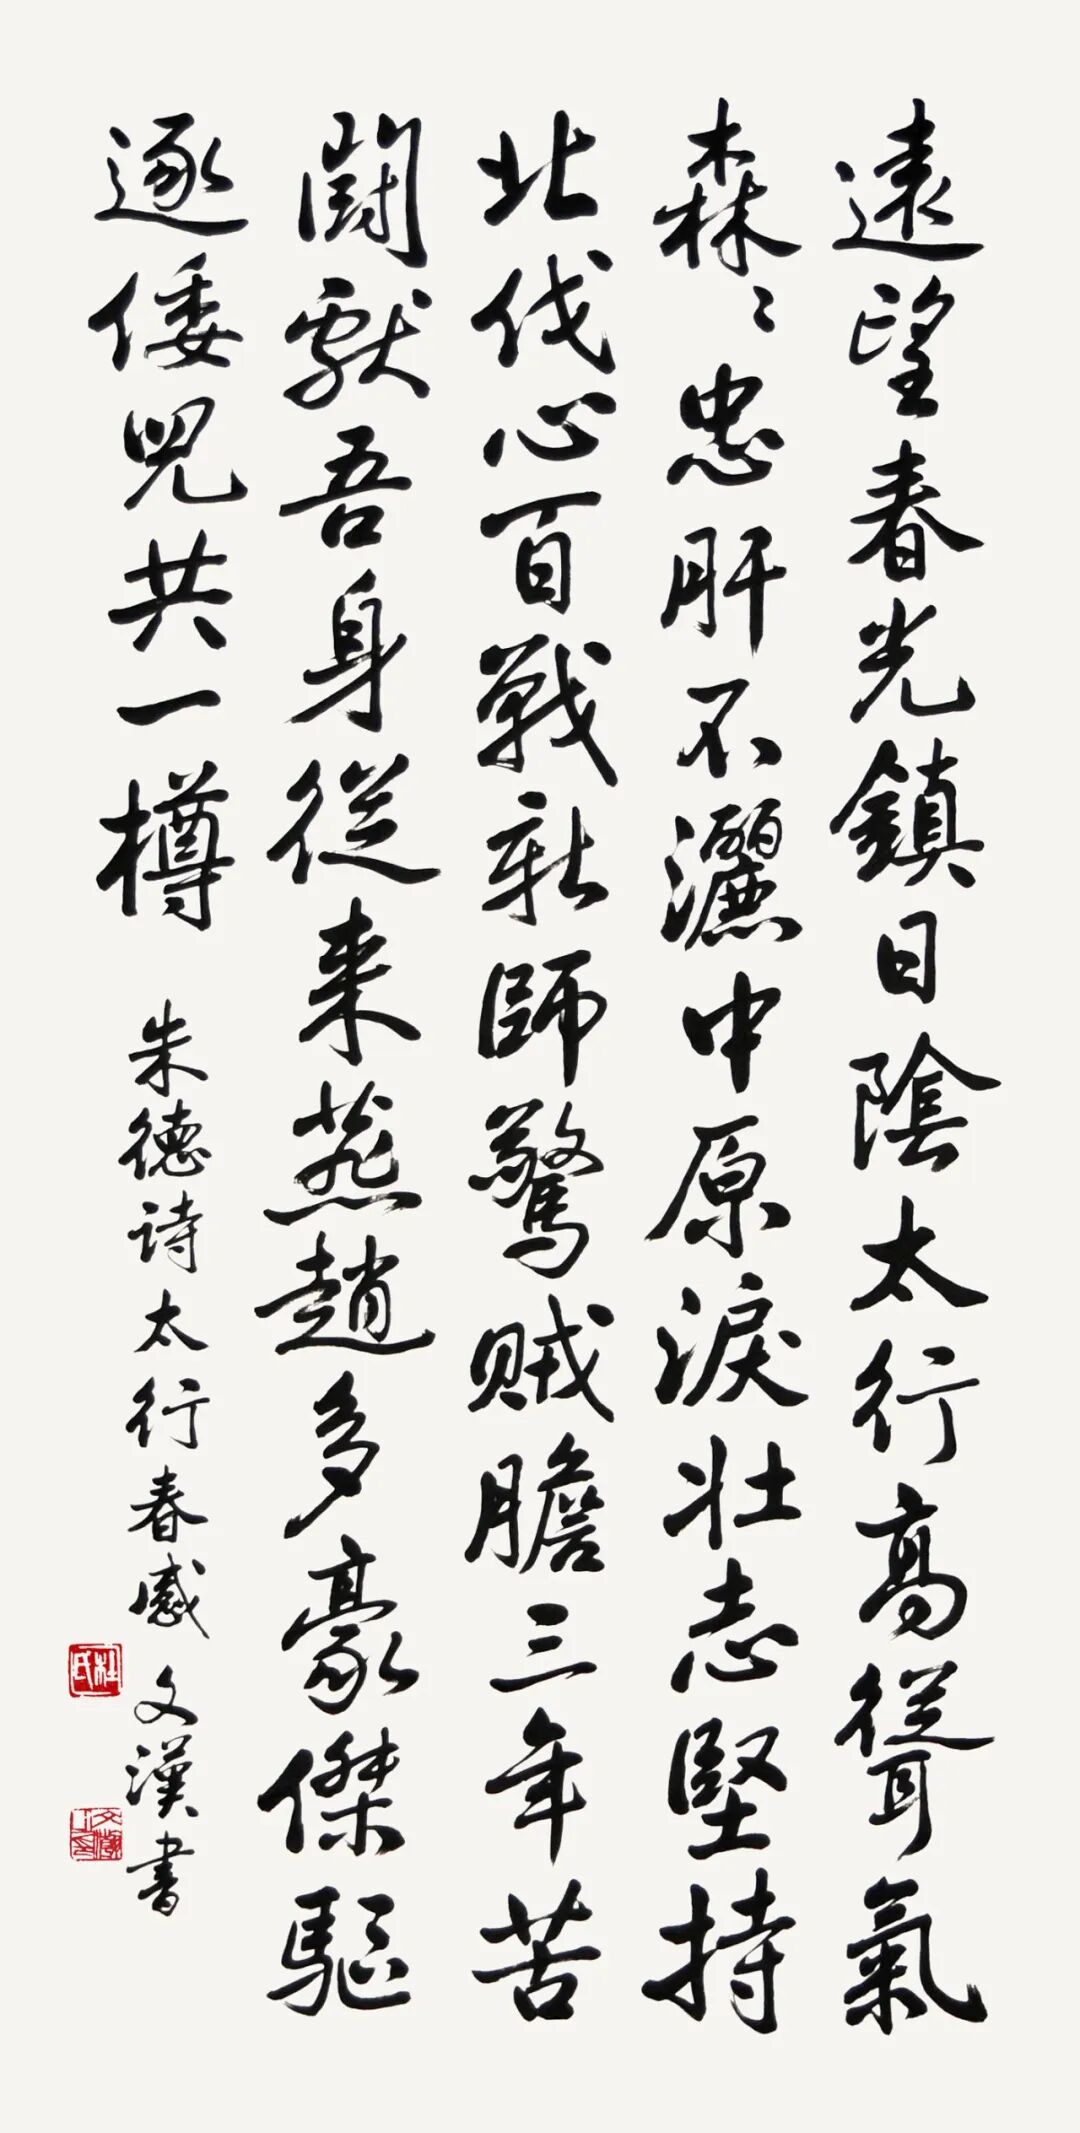 遠望春光鎮日陰太行高聳氣
森〻忠肝不灑中原淚壯志堅持
北伐心百戰新師驚賊膽三年苦
鬪獻吾身從来燕趙多豪傑驅
逐倭児共一樽
朱德诗太行春感
文漢書
杜氏